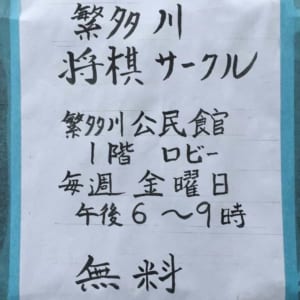 繁多川
将棋サークル
繁多川公民館
1階 ロビー
毎週 金曜日
午後6〜9時
無料